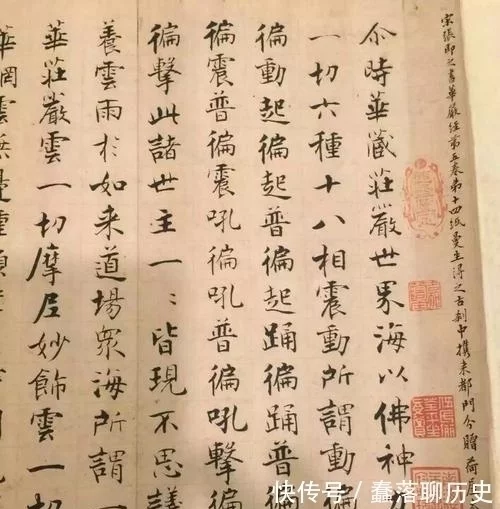 宋張即之書華嚴經第五卷第十四紙曼生得之古剎中攜来都門今贈荷屋
尒時華藏莊嚴世界海以佛神力
一切六種十八相震動所謂動
徧動起徧起普徧起踊徧踊普
徧震普徧震吼徧吼普徧吼擊
徧擊此諸世主一〻皆現不思議
養雲雨於如来道場衆海所謂一
華莊嚴雲一切摩尼妙飾雲一切
華網雲無
快传号／蠢落聊历史